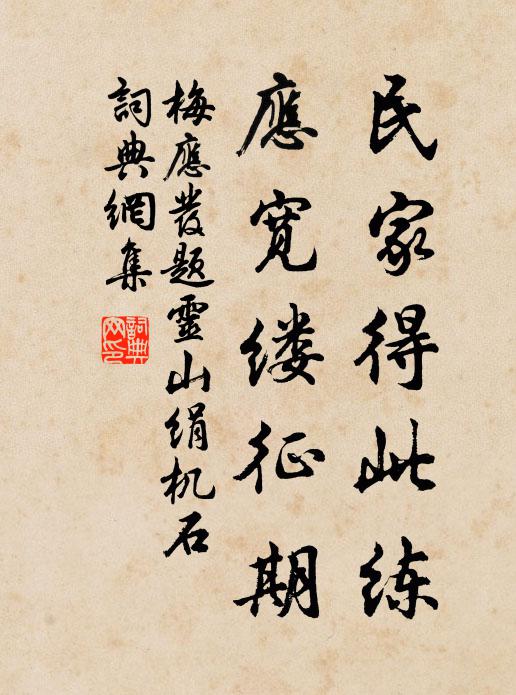 民家得此练
應宽缕征期
梅應發题靈山绢机石
詞典網集
詞典網印